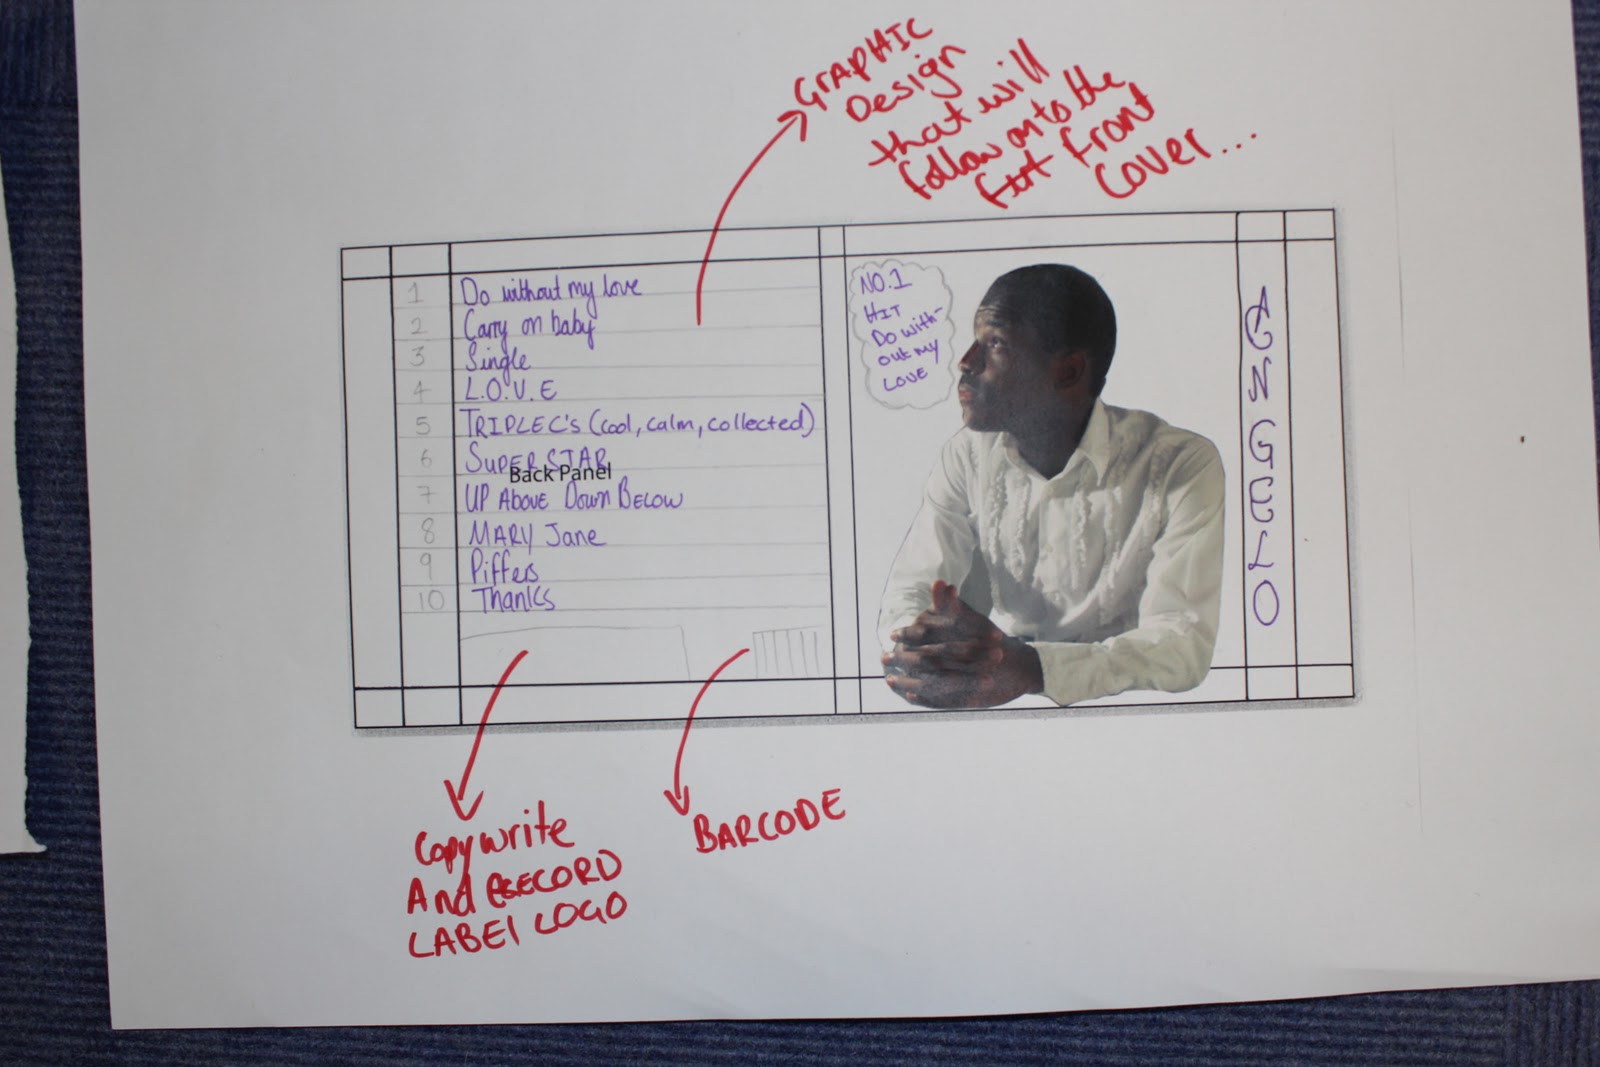 GRAPHIC
Design
that will
follow on to the
front
cover...
1 Do without my love
2 Carry on baby
3 Single
4 L.O.V.E
5 TRIPLE C's (cool, calm, collected)
6 SUPERSTAR
Back Panel
7 UP ABOVE DOWN BELOW
8 MARY Jane
9 Piffers
10 Thanks
NO.1
HIT
Do with-
out my
LOVE
ANGELO
Copywrite
And RECORD
LABEl LOGO
BARCODE